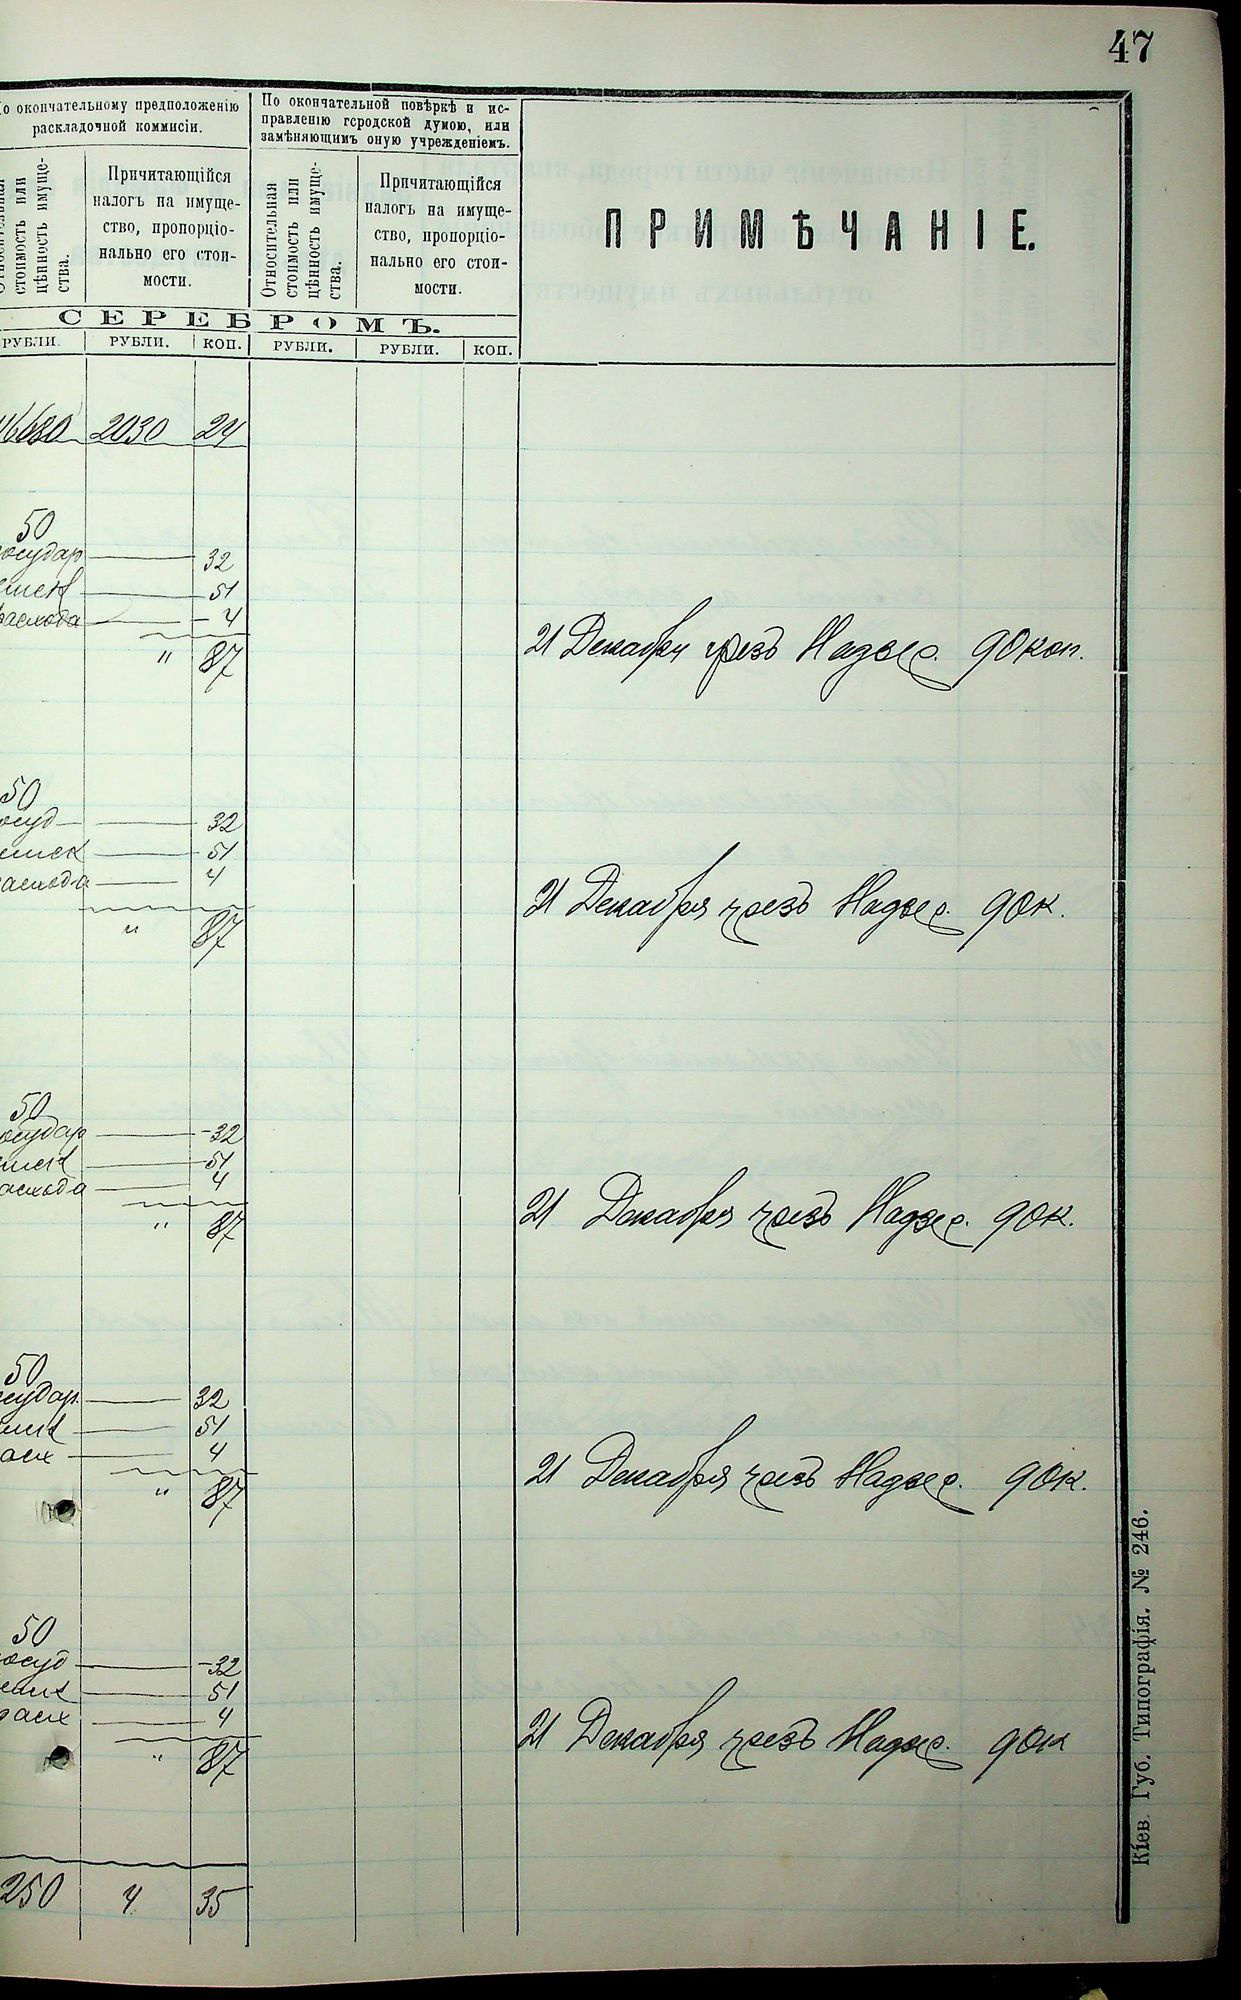 47
о окончательному предположенію
раскладочной коммисіи.
По окончательной повѣркѣ и ис-
правленію городской думою, или
замѣняющимъ оную учрежденіемъ.
стоимость или
цѣнность имуще-
ства.
Причитающійся
налогъ на имуще-
ство, пропорціо-
нально его стои-
мости.
Относительная
стоимость или
цѣнность имуще-
ства.
Причитающійся
налогъ на имуще-
ство, пропорціо-
нально его стои-
мости.
ПРИМѢЧАНІЕ.
СЕРЕБРОМЪ.
РУБЛИ. РУБЛИ. КОП. РУБЛИ. РУБЛИ. КОП.
16680 2030 24
50
осудар 32
емск 51
расхода 4
" 87
21 Декабря чрезъ Надзер. 90 коп.
50
осуд 32
емск 51
асхода 4
" 87
21 Декабря чрезъ Надзер. 90 к.
50
осудар 32
емск 51
асхода 4
" 87
21 Декабря чрезъ Надзер. 90 к.
50
осудар. 32
емск 51
асх 4
" 87
21 Декабря чрезъ Надзер. 90 к.
50
осуд 32
емск 51
расх 4
" 87
21 Декабря чрезъ Надзер. 90 к
250 4 35
Кіев. Губ. Типографія. № 246.